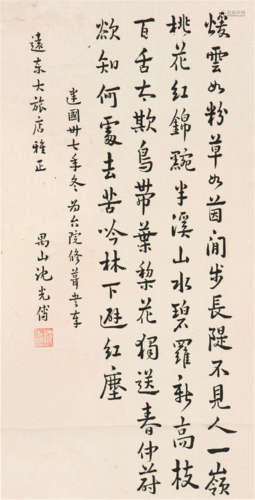 煖雲如粉草如茵閒步長隄不見人一嶺
桃花紅錦黦半溪山水碧羅新高枝
百舌太欺鳥帶葉梨花獨送春仲蔚
欲知何處去苦吟林下避紅塵
建國卅七年冬為台院修葺
遠東大旅店雅正
禺山 光